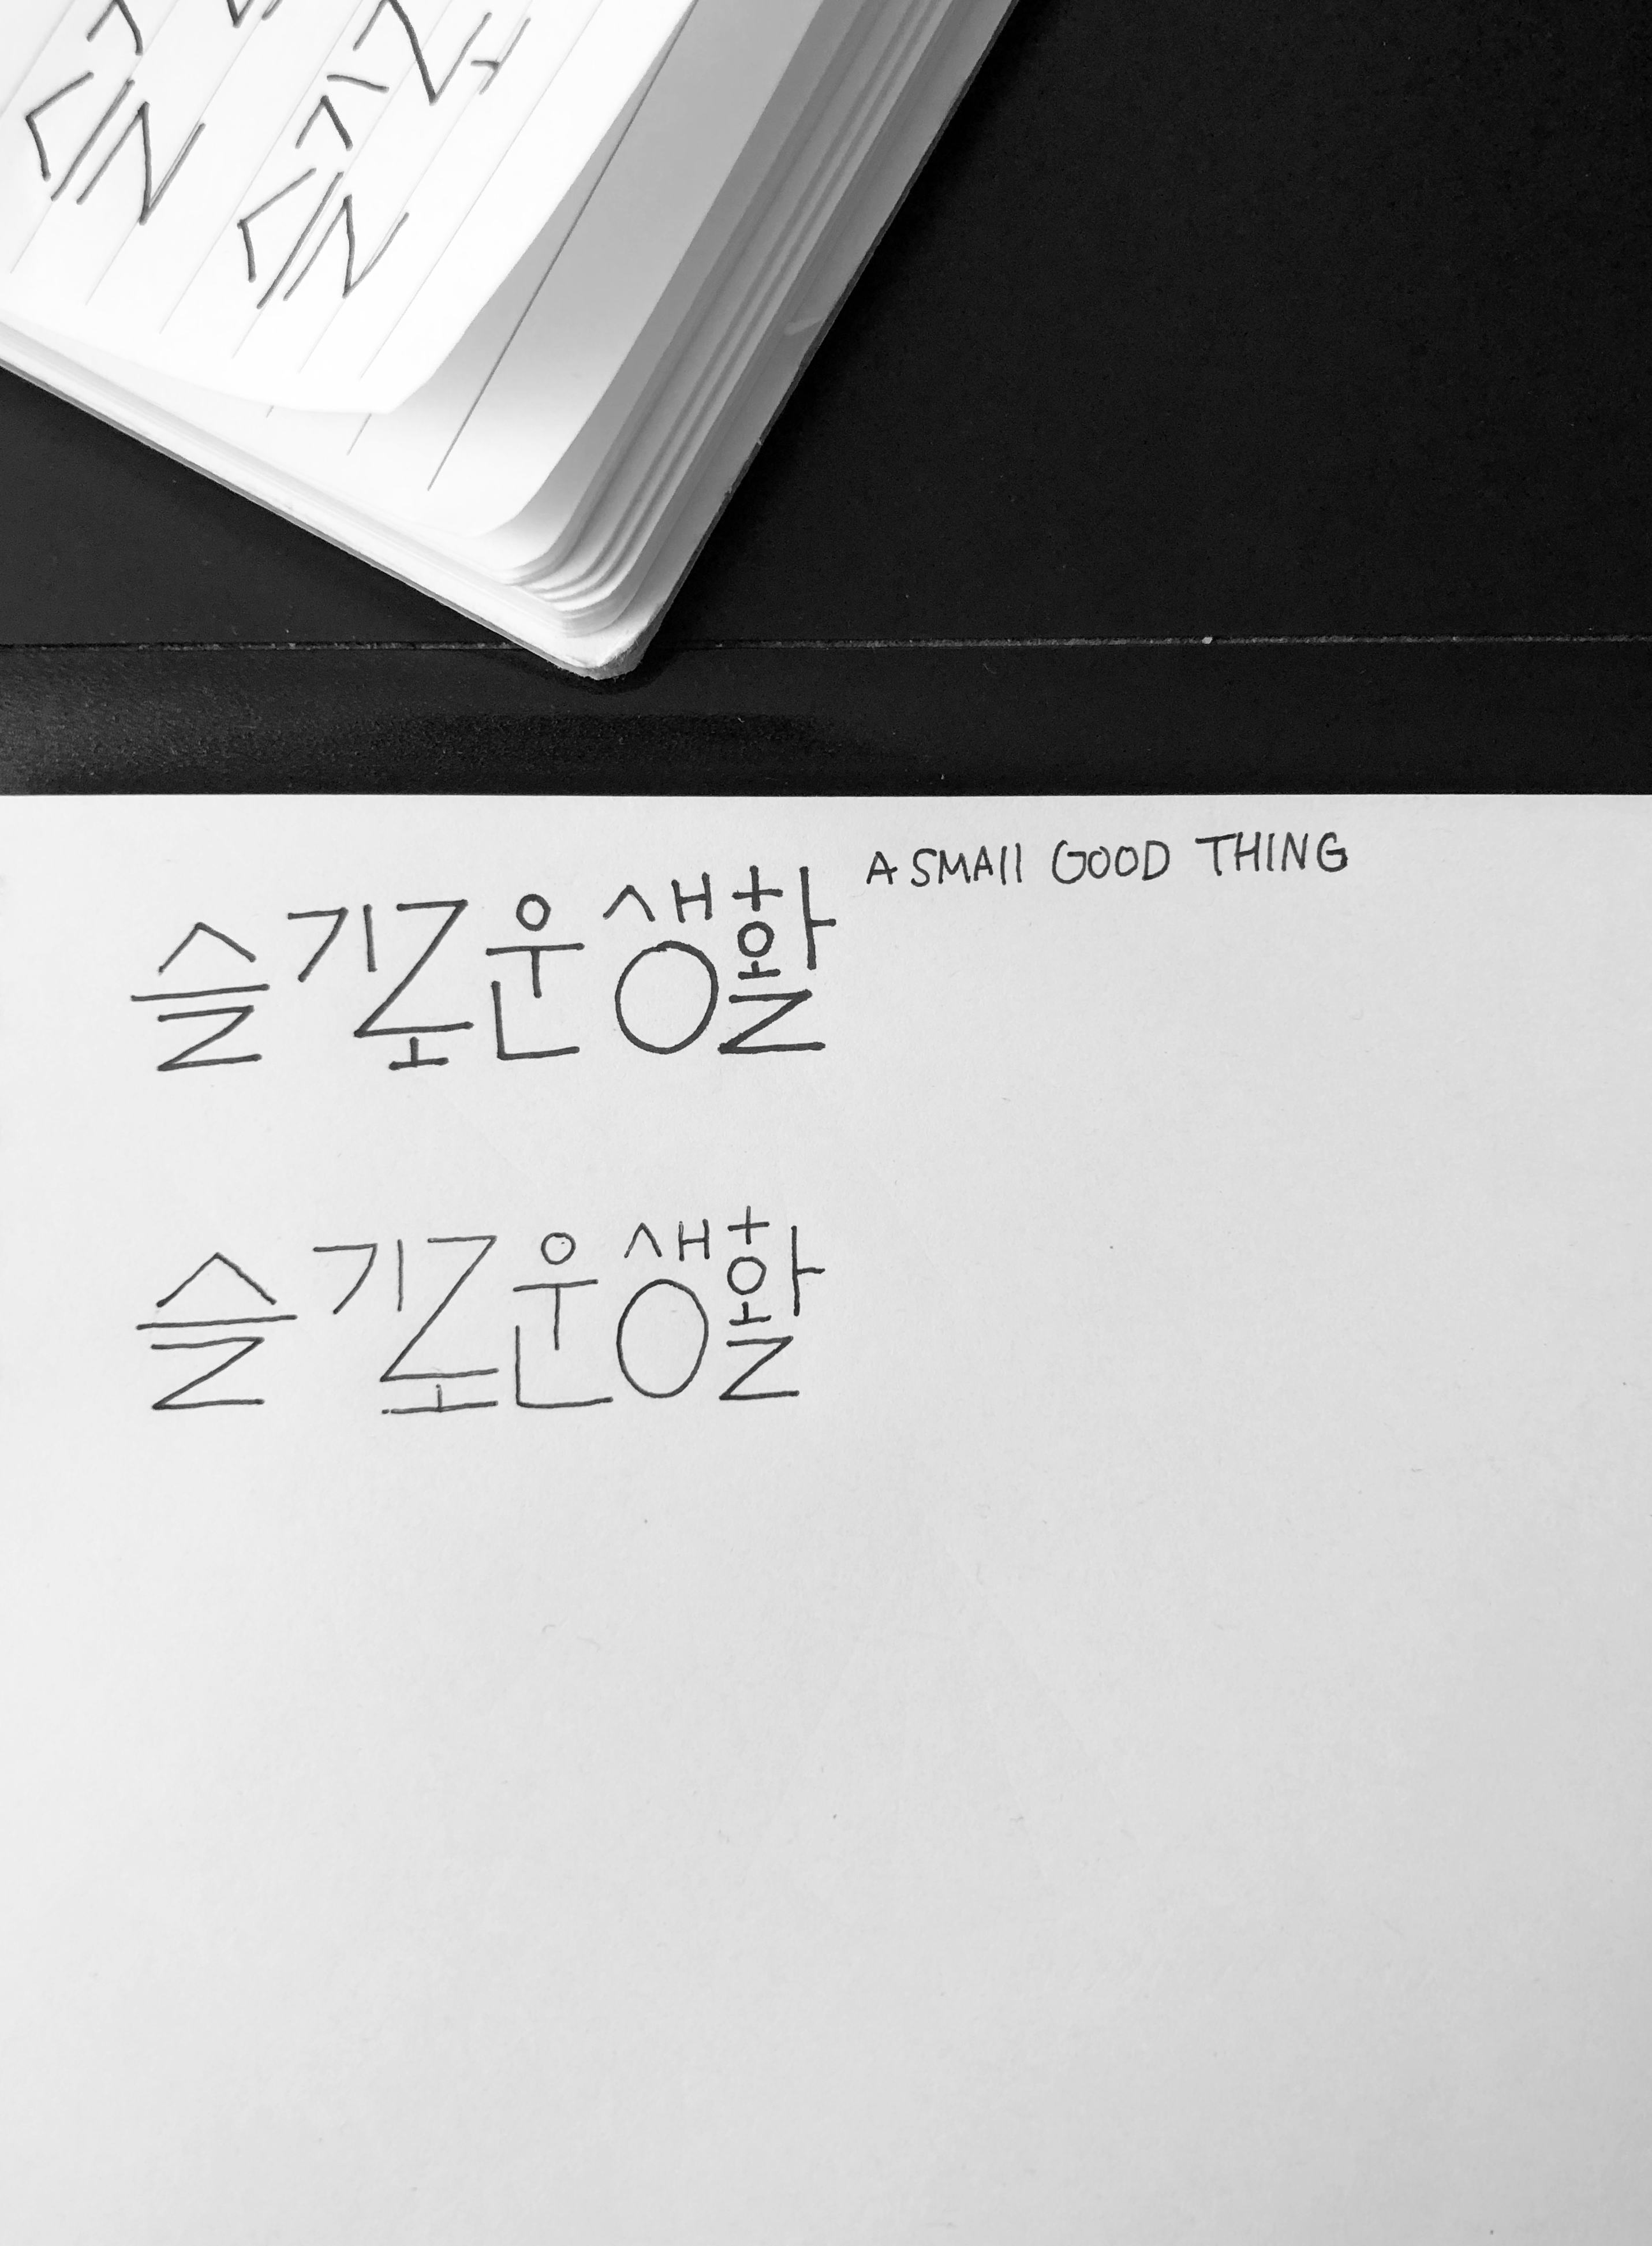 슬기로운생활 A SMAll GOOD THING
슬기로운생활